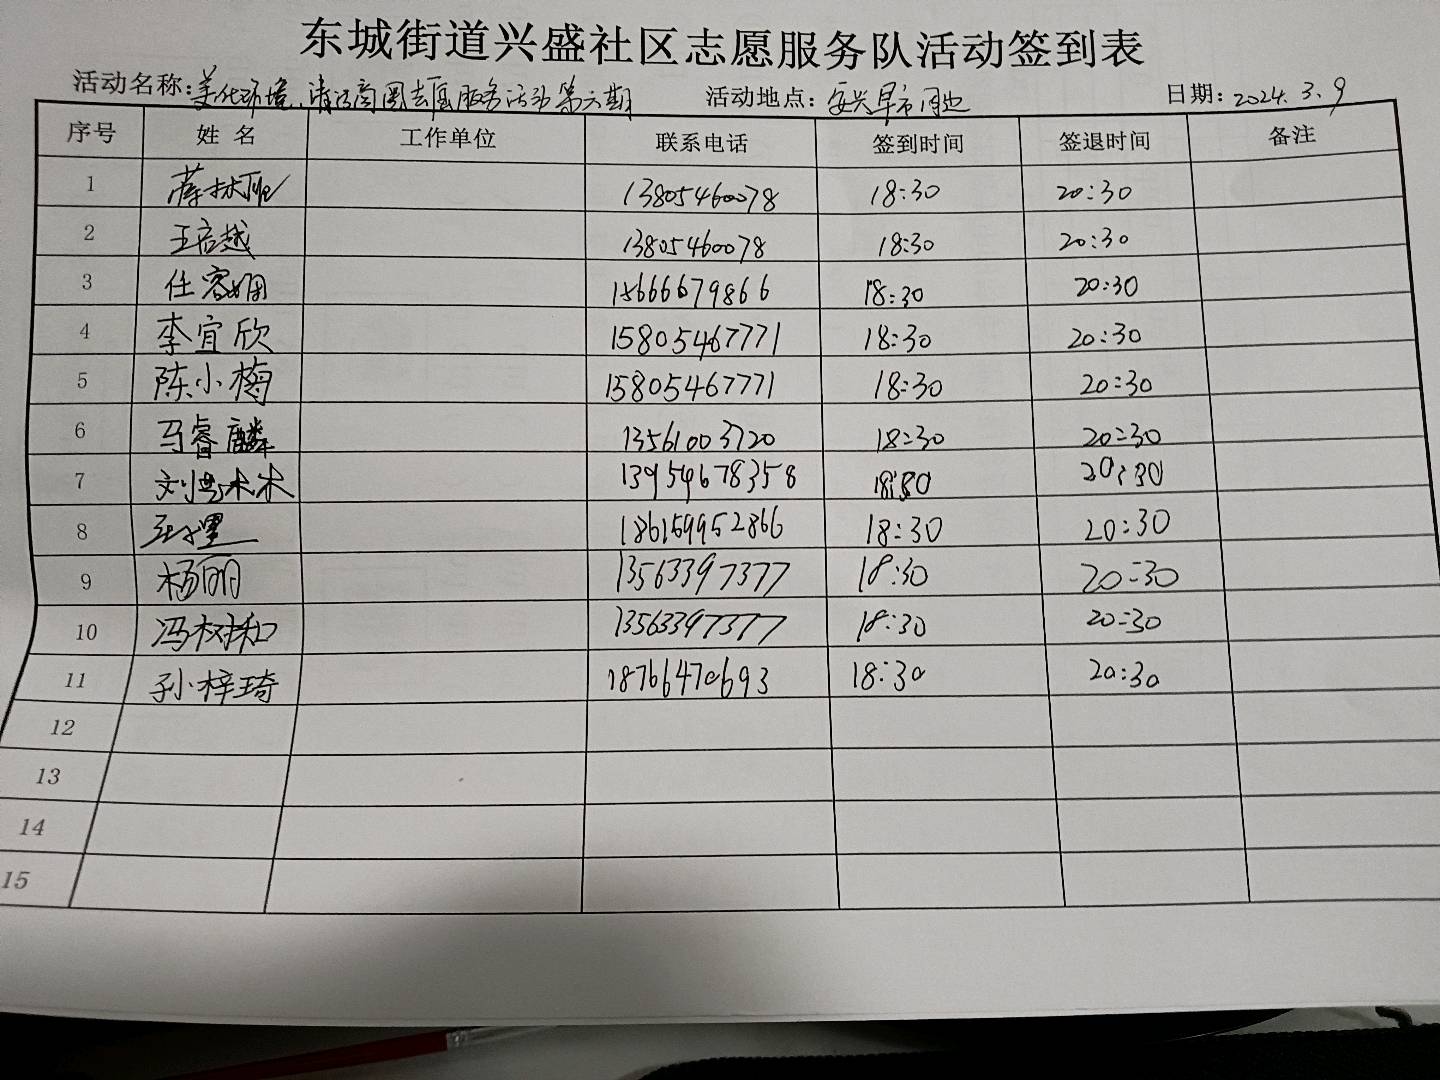 东城街道兴盛社区志愿服务队活动签到表
活动名称：美化环境、清洁商圈志愿服务活动第六期 活动地点：安兴早市周边 日期：2024.3.9
序号 姓名 工作单位 联系电话 签到时间 签退时间 备注
1 13805460078 18:30 20:30
2 王启越 13805460078 18:30 20:30
3 任容娴 15666679866 18:30 20:30
4 李宜欣 15805467771 18:30 20:30
5 陈小梅 15805467771 18:30 20:30
6 马睿麟 13561003720 18:30 20:30
7 13954678358 18:30 20:30
8 186159952866 18:30 20:30
9 杨丽 13563397377 18:30 20:30
10 冯树和 13563397377 18:30 20:30
11 孙梓琦 18766470693 18:30 20:30
12
13
14
15